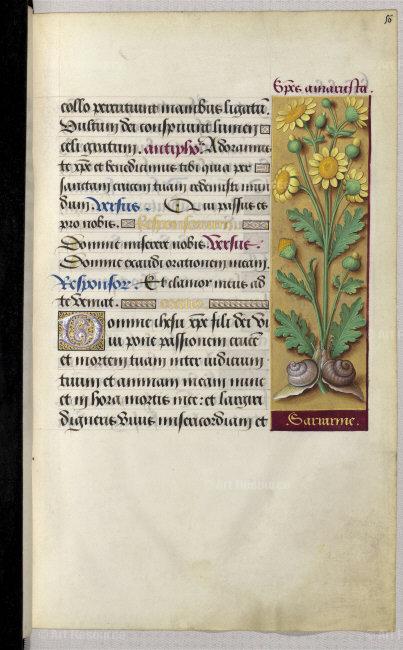 56
Spēs amarusta.
collo percutiunt manibus ligatū.
Vultum dei conspuunt lumen
celi gratum. antipho. Adoramus
te xpē et benedicimus tibi quia per
sanctam crucem tuam redemisti mun
dum. Versus. Qui passus es
pro nobis. Responsorium
Domine miserere nobis. Versus.
Domine exaudi orationem meam.
Responsor. Et clamor meus ad
te veniat. oratio
Domine ihesu xpē fili dei vi
ui pone passionem crucē
et mortem tuam inter iudicium
tuum et animam meam nunc
et in hora mortis mee: et largiri
digneris viuis misericordiam et
Art Resource
Art Resource